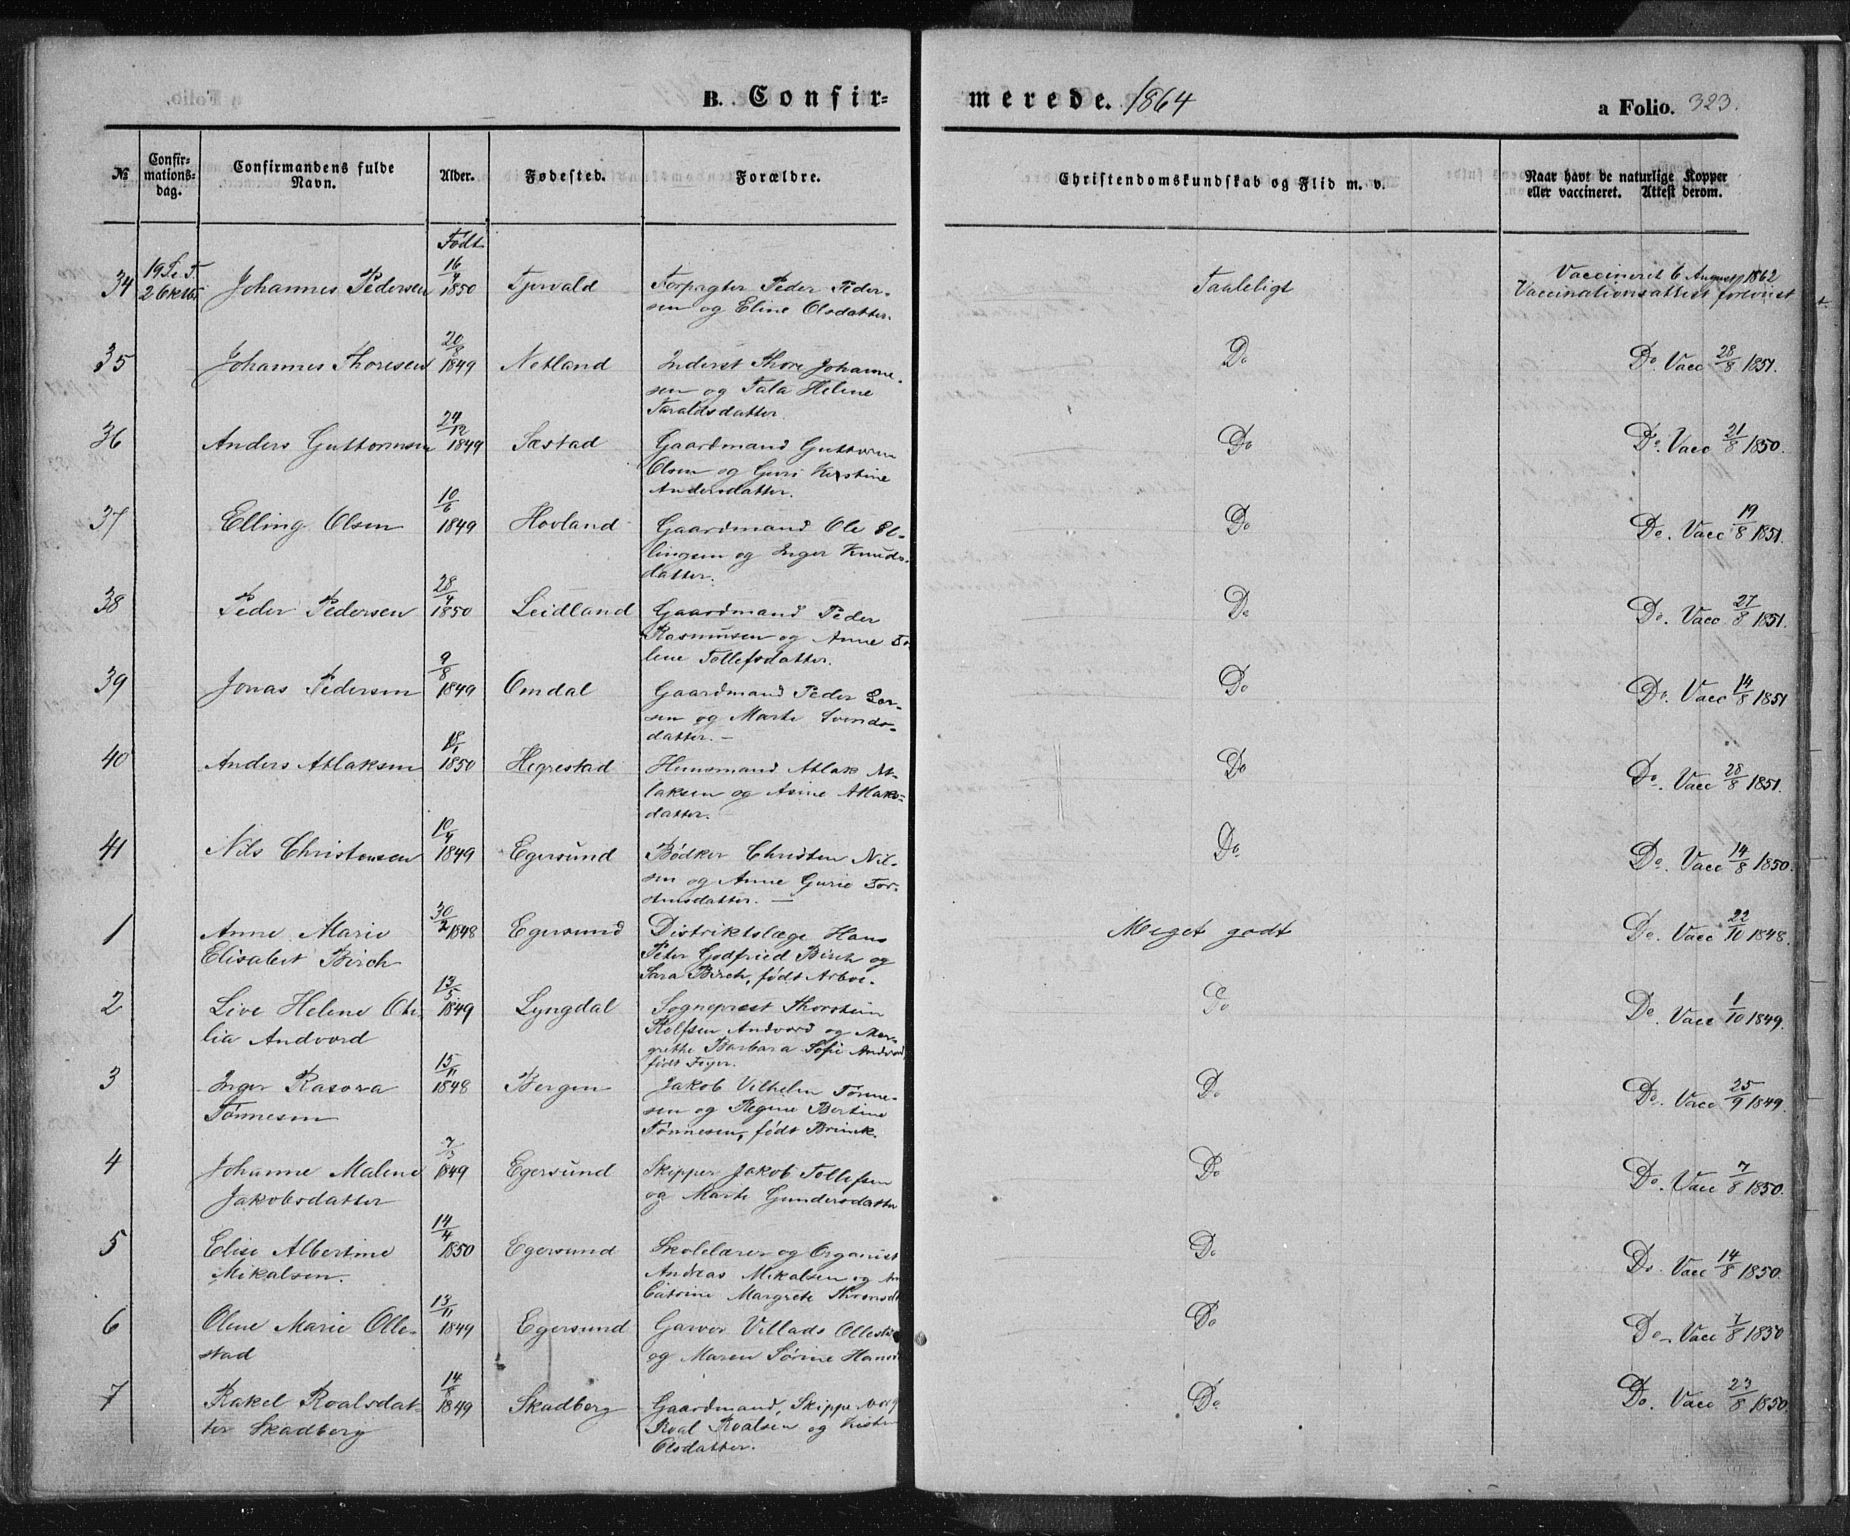 B. Confir-
merede. 1864
a Folio. 323.
№
Confir-
mations-
dag.
Confirmandens fulde
Navn.
Alder.
Fødested.
Forældre.
Christendomskundskab og Flid m. v.
Naar havt de naturlige Kopper
eller vaccineret. Attest derom.
Født
34 Johannes Pedersen 16/4 1850 Tjervald Forpagter Peder Peder-
sen og Eline Olsdatter.
Taaleligt
Vaccineret 6 August 1862
Vaccinationsattest forevist
35 Johannes Thoresen 1849 Netland Inderst Thore Johanne-
sen og Tala Helene
Taraldsdatter.
Do Do. Vacc 28/8 1851.
36 Anders Guttormsen 24/12 1849 Sæstad Gaardmand Guttorm
Olsen og Guri Kirstine
Andersdatter.
Do Do. Vacc 21/8 1850.
37 Elling Olsen 10/6 1849 Hovland Gaardmand Ole El-
lingsen og Inger Knuds-
datter.
Do Do. Vacc 19/8 1851.
38 Peder Pedersen 28/4 1850 Leidland Gaardmand Peder
Rasmusen og Anne
lene Tollefsdatter.
Do Do. Vacc 27/8 1851.
39 Jonas Pedersen 9/8 1849 Omdal Gaardmand Peder Lar-
sen og Marte Svends-
datter.
Do Do. Vacc 14/8 1851
40 Anders Atlaksen 1850 Hegrestad Huusmand Atlak At-
laksen og Anne Atlaks-
datter.
Do Do. Vacc 28/8 1851.
41 Nils Christensen 10/4 1849 Egersund Bødker Christen Nil-
sen og Anne Gurie Tor-
Do. Do. Vacc 14/8 1850.
1 Anne Marie 30/2 1848 Egersund Distriktslæge Hans
Elisabet Birch Peter Godfried Birch og
Sara Birch, født Arboe.
Meget godt Do. Vacc 22/10 1848.
2 Live Helene Oti- 13/5 1849 Lyngdal Sogneprest Thorstein
lia Andvord Rolfsen Andvord og Mar-
grethe Barbara Sofie Andvord
født
Do Do. Vacc 1/10 1849.
3 Inger Rasora 15/11 1848 Bergen Jakob Vilhelm Tønne-
Tønnesen sen og Regine Bertine
Tønnesen, født Brinck.
Do Do. Vacc 25/9 1849.
4 Johanne Malene 1849 Egersund Skipper Jakob Tollefsen
Jakobsdatter og Marte Gundersdatter
Do Do. Vacc 7/8 1850.
5 Elise Albertine 14/4 1850 Egersund Skolelærer og Organist
Mikalsen. Andreas Mikalsen og
Catrine Margrete
Do Do. Vacc 14/8 1850.
6 Olene Marie Olle- 13/11 1849 Egersund Garver Villads
stad og Maren Sørine
Do Do. Vacc 7/8 1850
7 Rakel Roalsdat- 14/8 1849 Skadberg Gaardmand, Skipper og
ter Skadberg Roal Roalsen og
Olsdatter.
Do Do. Vacc 23/8 1850.